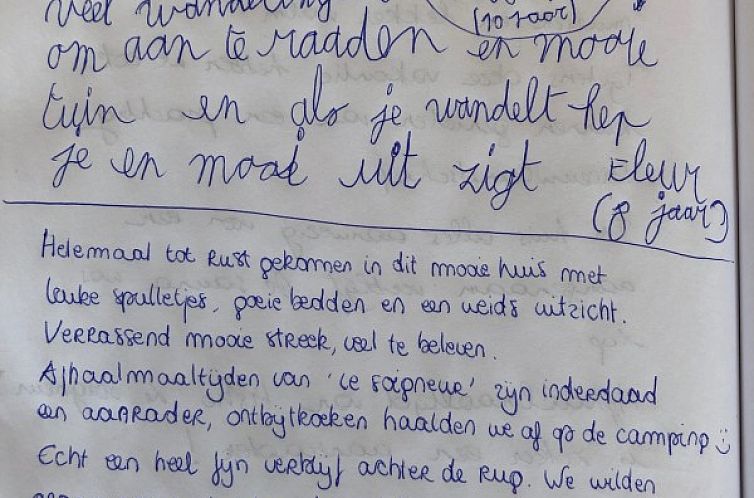 veel wandeling
(10 jaar)
om aan te raaden en mooie
tuin en als je wandelt hep
je en mooi uit zigt Fleur
(8 jaar)
Helemaal tot rust gekomen in dit mooie huis met
leuke spulletjes, goeie bedden en een weids uitzicht.
Verrassend mooie streek, veel te beleven.
Afhaalmaaltijden van 'Le Soigneur' zijn inderdaad
een aanrader, ontbijtkoeken haalden we af op de camping
Echt een heel fijn verblijf achter de rug. We wilden